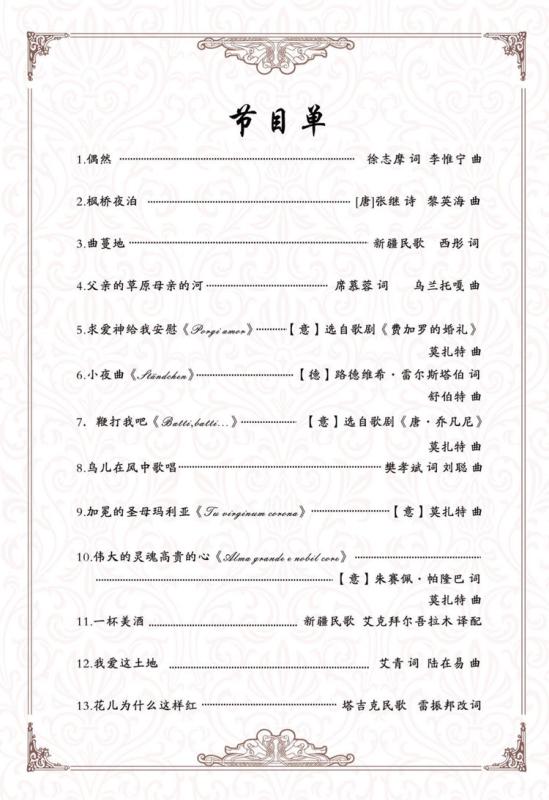 节目单
1.偶然 ……………… 徐志摩 词 李惟宁 曲
2.枫桥夜泊 ……………… [唐]张继 诗 黎英海 曲
3.曲蔓地 ……………… 新疆民歌 西彤 词
4.父亲的草原母亲的河 ……………… 席慕蓉 词 乌兰托嘎 曲
5.求爱神给我安慰《Porgi amor》………【意】选自歌剧《费加罗的婚礼》
莫扎特 曲
6.小夜曲《Ständchen》………………【德】路德维希·雷尔斯塔伯词
舒伯特 曲
7. 鞭打我吧《Batti,batti...》……………【意】选自歌剧《唐·乔凡尼》
莫扎特 曲
8.鸟儿在风中歌唱 ……………… 樊孝斌 词 刘聪 曲
9.加冕的圣母玛利亚《Tu virginum corona》………………【意】莫扎特 曲
10.伟大的灵魂高贵的心《Alma grande e nobil core》………………
………………【意】朱赛佩·帕隆巴 词
莫扎特 曲
11.一杯美酒 ……………… 新疆民歌 艾克拜尔吾拉木 译配
12.我爱这土地 ……………… 艾青 词 陆在易 曲
13.花儿为什么这样红 ……………… 塔吉克民歌 雷振邦改词